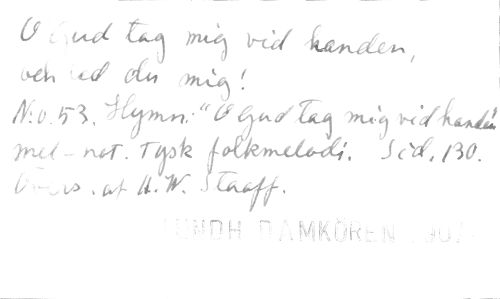 O Gud tag mig vid handen,
och led du mig!
N:o. 53. Hymn: "O Gud tag mig vid handen
mel-not. Tysk folkmelodi. Sid. 130.
Övers. af H. W. Staaff.
LUNDH DAMKÖREN